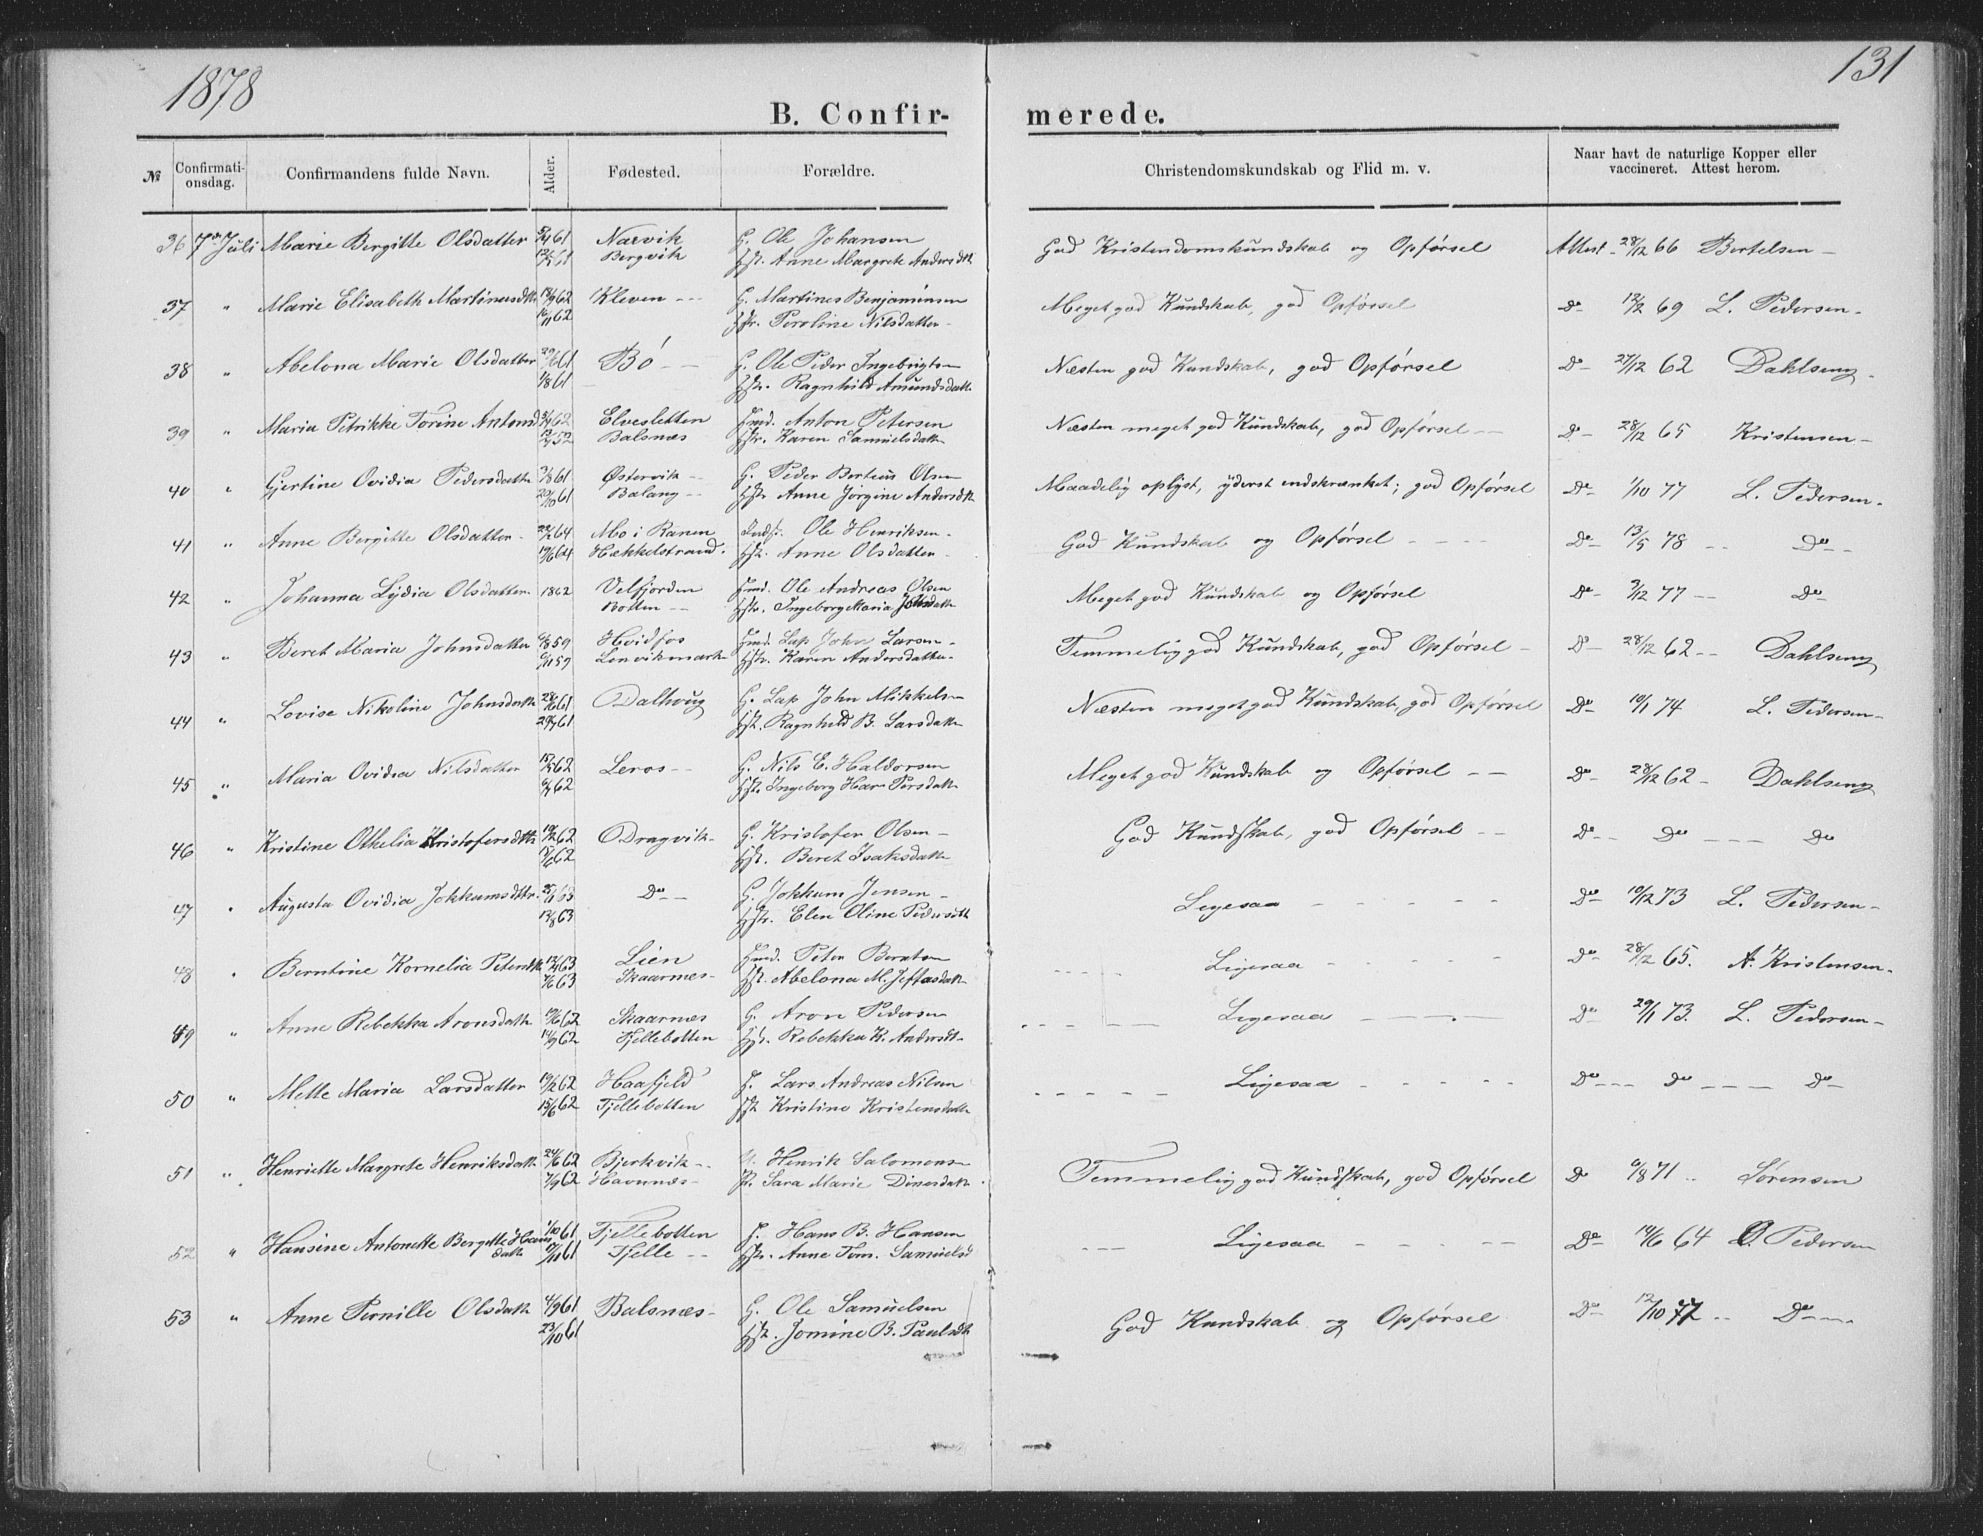 1878
131
B. Confir-
merede.
№ Confirmati-onsdag. Confirmandens fulde Navn. Alder. Fødested. Forældre. Christendomskundskab og Flid m. v. Naar havt de naturlige Kopper eller vaccineret. Attest herom.
36 7de Juli Marie Bergitte Olsdatter 61 Narvik G. Ole Johansen God Kristendomskundskab og Opførsel Attest 28/12 66 Bertelsen
61 Bergvik Hst. Anne Margrete Andersdtr
37 " Marie Elisabeth Martinusdtr 18/9 62 Kleven G. Martines Benjaminsen Meget god Kundskab, god Opførsel Do 12/2 69 L. Pedersen
16/11 62 Hst. Peroline Nilsdatter
38 " Abelona Marie Olsdatter 29/6 61 Bö G. Ole Peder Ingebrigtsen Næsten god Kundskab, god Opførsel Do 27/12 62 Dahlseng
1/8 61 Hst. Ragnhild Amundsdatter
39 " Maria Petrikke Torine Antonsd 62 Elvesletten Ind. Anton Petersen Næsten meget god Kundskab, god Opførsel Do 28/12 65 Kristensen
52 Balsnæs Hst. Karen Samuelsdatter
40 " Gjertine Ovidia Pedersdatter 7/8 61 Østervik G. Peder Berteus Olsen Maadelig oplyst, yderst indskrænket; god Opførsel Do 1/10 77 L. Pedersen
20/10 61 Balang Hst. Anne Jörgine Andersdtr
41 " Anne Bergitte Olsdatter 64 Mo i Ranen Ole Henriksen God Kundskab og Opførsel Do 13/5 78 Do
19/6 64 Hekkelstrand Hst. Anne Olsdatter
42 " Johanna Lydia Olsdatter 1862 Velfjorden Ind. Ole Andreas Olsen Meget god Kundskab og Opførsel Do 3/12 77 Do
Botten Hst. Ingeborg Maria Johsdatter
43 " Beret Maria Johnsdatter 6/8 59 Hvidfos Ind. Lap John Larsen Temmelig god Kundskab, god Opførsel Do 28/12 62 Dahlseng
6/11 59 Lenvikmark Hst. Karen Andersdatter
44 " Lovise Nikoline Johnsdatter 28/6 61 Dalhoug G. Lap John Mikkelsen Næsten meget god Kundskab, god Opførsel Do 10/1 74 L. Pedersen
61 Hst. Ragnhild B. Larsdatter
45 " Maria Ovidia Nilsdatter 62 Leros G. Nils E. Haldorsen Meget god Kundskab og Opførsel Do 28/12 62 Dahlseng
62 Hst. Ingeborg Persdatter
46 " Kristine Othelia Kristofersdtr 19/2 62 Dragvik G. Kristofer Olsen God Kundskab, god Opførsel Do Do Do
62 Hst. Beret Isaksdatter
47 " Augusta Ovidia Jokkumsdtr. 25/1 63 Do G. Jokkum Jensen Ligesaa Do 10/12 73 L. Pedersen
12/8 63 Hst. Elen Oline Pedersdtr
48 " Berntine Kornelia Petersdtr 63 Lien Ind. Peter Berntsen Ligesaa Do 28/12 65. A. Kristensen
7/6 63 Skaarnes Hst. Abelona M. Jeftasdatter
49 " Anne Rebekka Aronsdatter 62 Skaarnes G. Aron Pedersen Ligesaa Do 29/1 73. L. Pedersen
14/9 62 Fjellebotten Hst. Rebekka K. Andersdtr
50 " Mette Maria Larsdatter 19/2 62 Haafjeld I. Lars Andreas Nilsen Ligesaa Do Do Do
15/6 62 Fjellebotten Hst. Kristine Kristensdatter
51 " Henriette Margrete Henriksdatter 24/6 62 Bjerkvik Henrik Salomonsen Temmelig god Kundskab, god Opførsel Do 6/8 71 Sörensen
7/9 62 Havnnæs Sara Marie Dinesdatter
52 " Hansine Antonette Bergitte Hans 1/10 61 Fjellebotten I. Hans B. Hansen Ligesaa Do 14/6 64 O. Pedersen
datter 17/11 61 Fjelle Hst. Anne Tom. Samuelsd
53 " Anne Pernille Olsdatter 4/9 61 Balsnæs G. Ole Samuelsen God Kundskab og Opførsel Do 12/10 77 Do
23/10 61 Hst. Jomine B. Paulsdtr